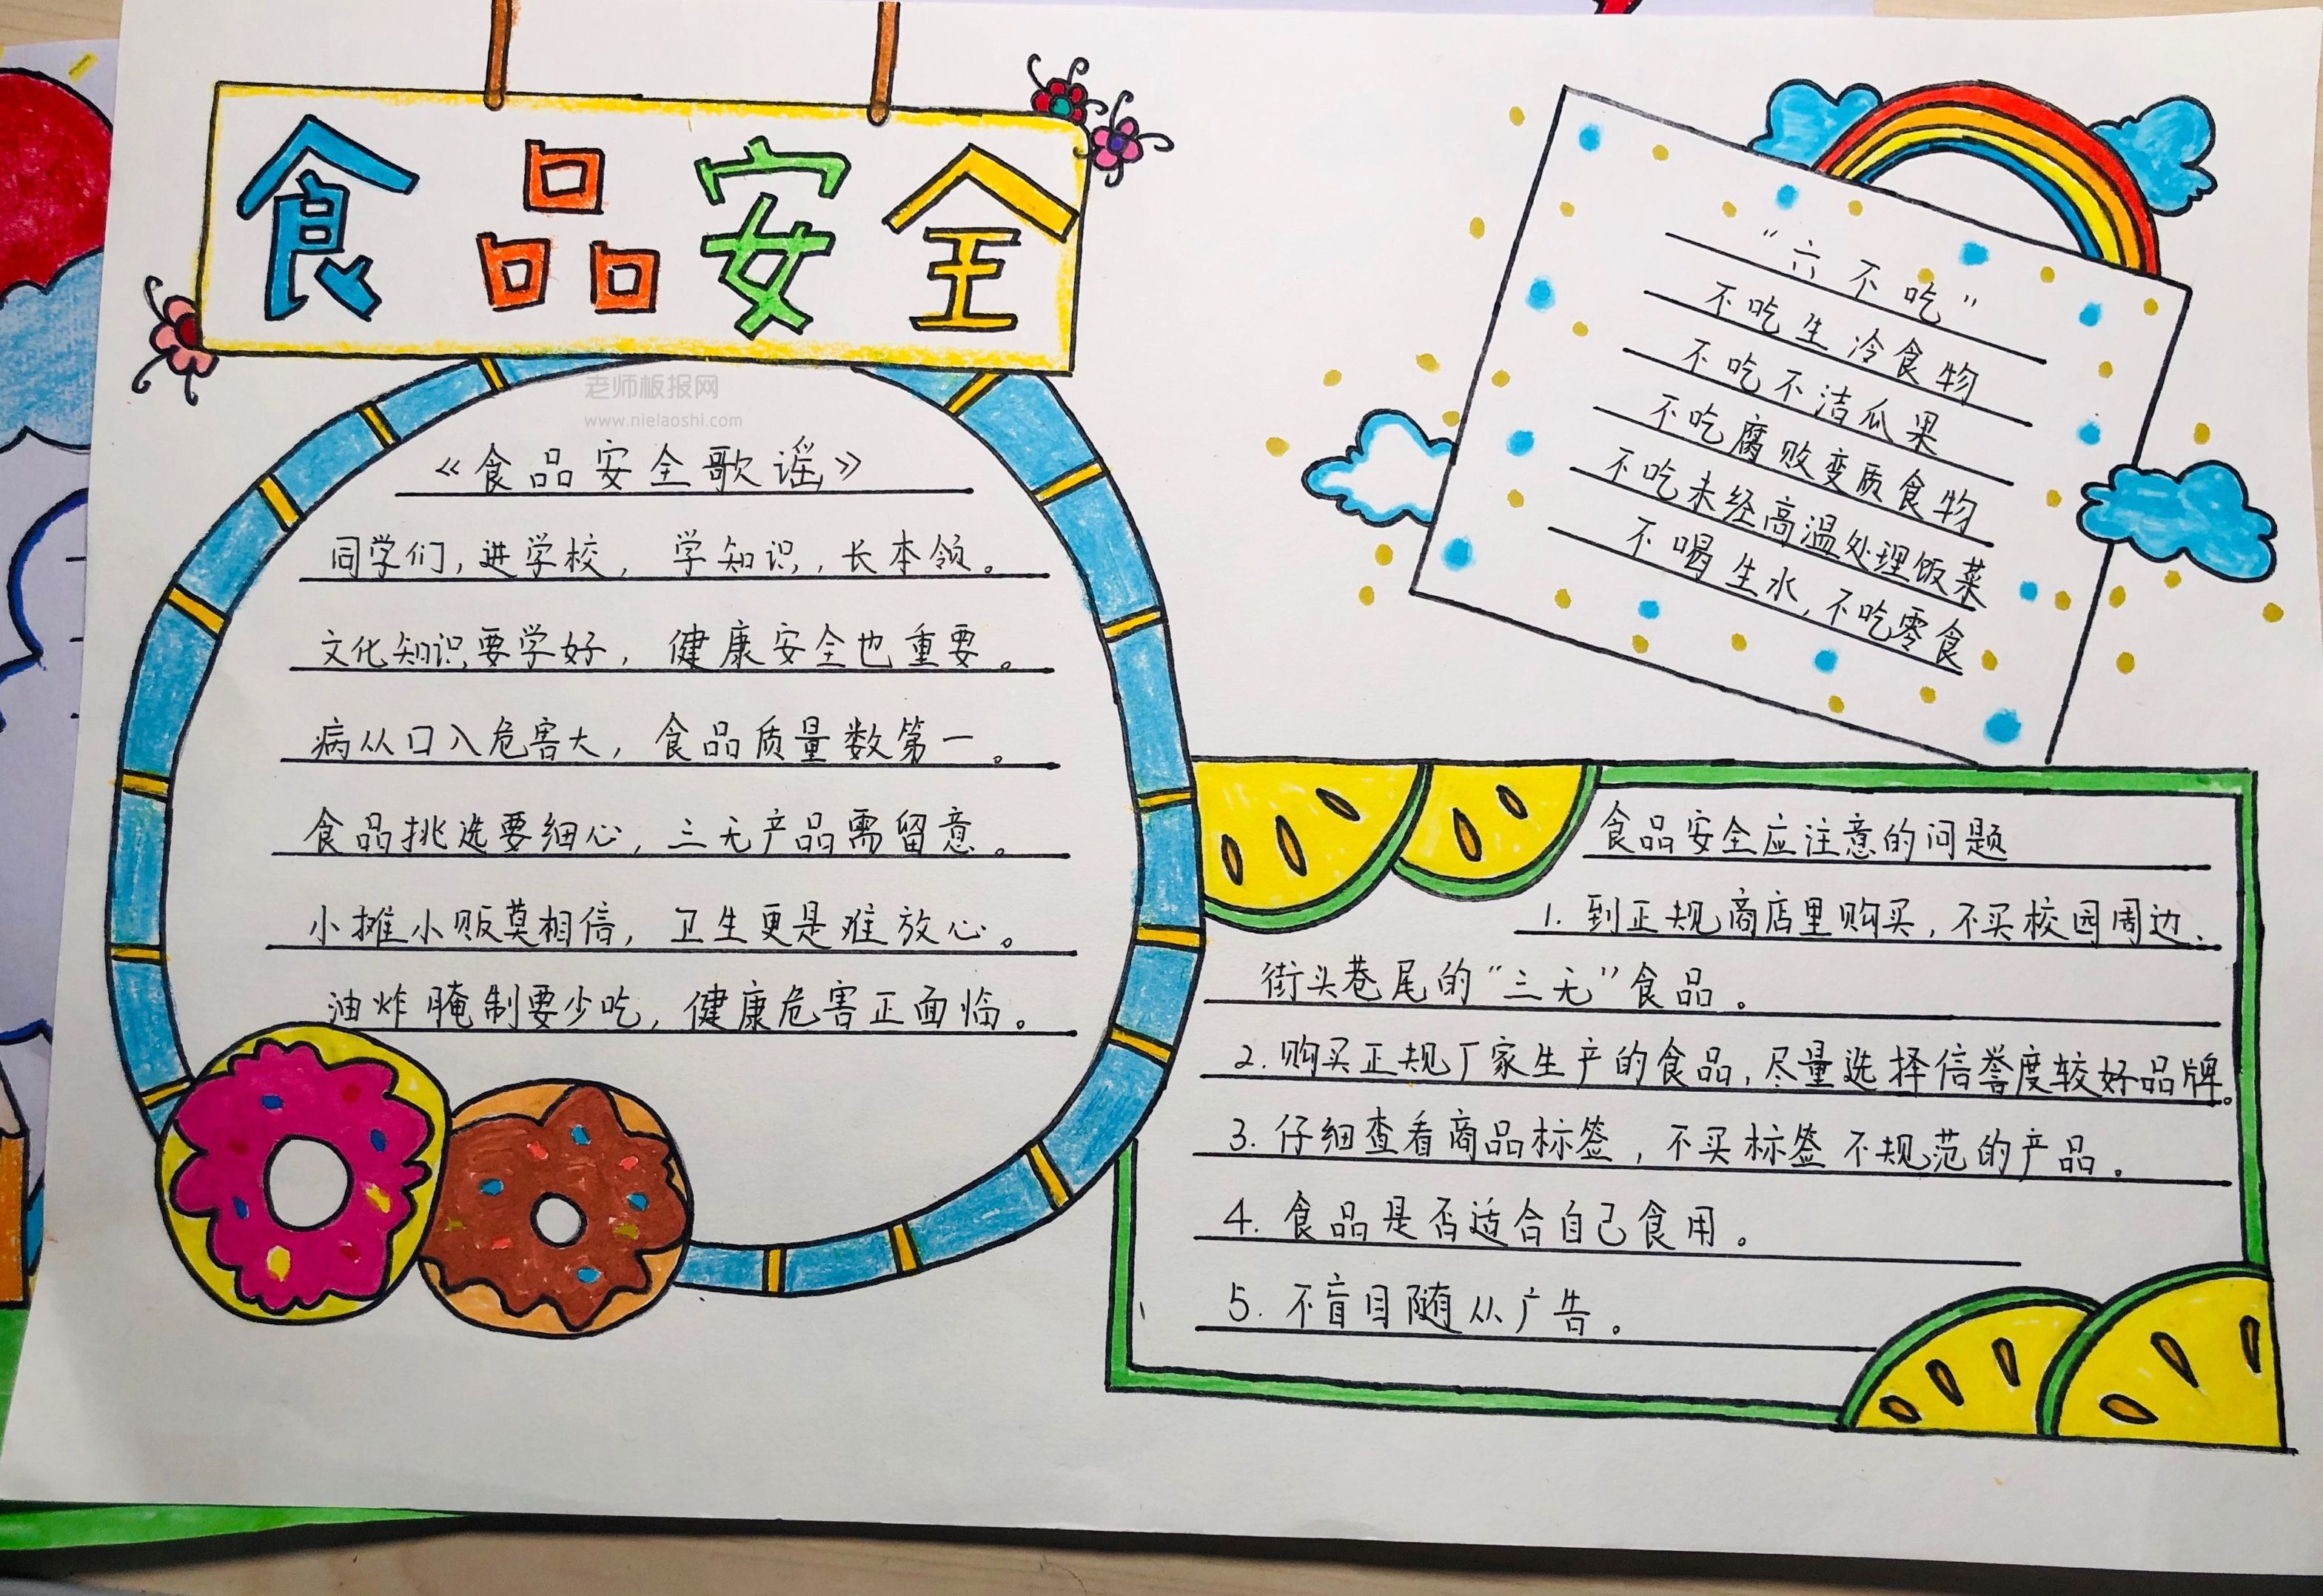 食品安全
老师板报网
www.nielaoshi.com
《食品安全歌谣》
同学们,进学校,学知识,长本领。
文化知识要学好,健康安全也重要。
病从口入危害大,食品质量数第一。
食品挑选要细心,三无产品需留意。
小摊小贩莫相信,卫生更是难放心。
油炸腌制要少吃,健康危害正面临。
“六不吃”
不吃生冷食物
不吃不洁瓜果
不吃腐败变质食物
不吃未经高温处理饭菜
不喝生水,不吃零食
食品安全应注意的问题
1. 到正规商店里购买,不买校园周边、
街头巷尾的“三无”食品。
2. 购买正规厂家生产的食品,尽量选择信誉度较好品牌。
3. 仔细查看商品标签,不买标签不规范的产品。
4. 食品是否适合自己食用。
5. 不盲目随从广告。